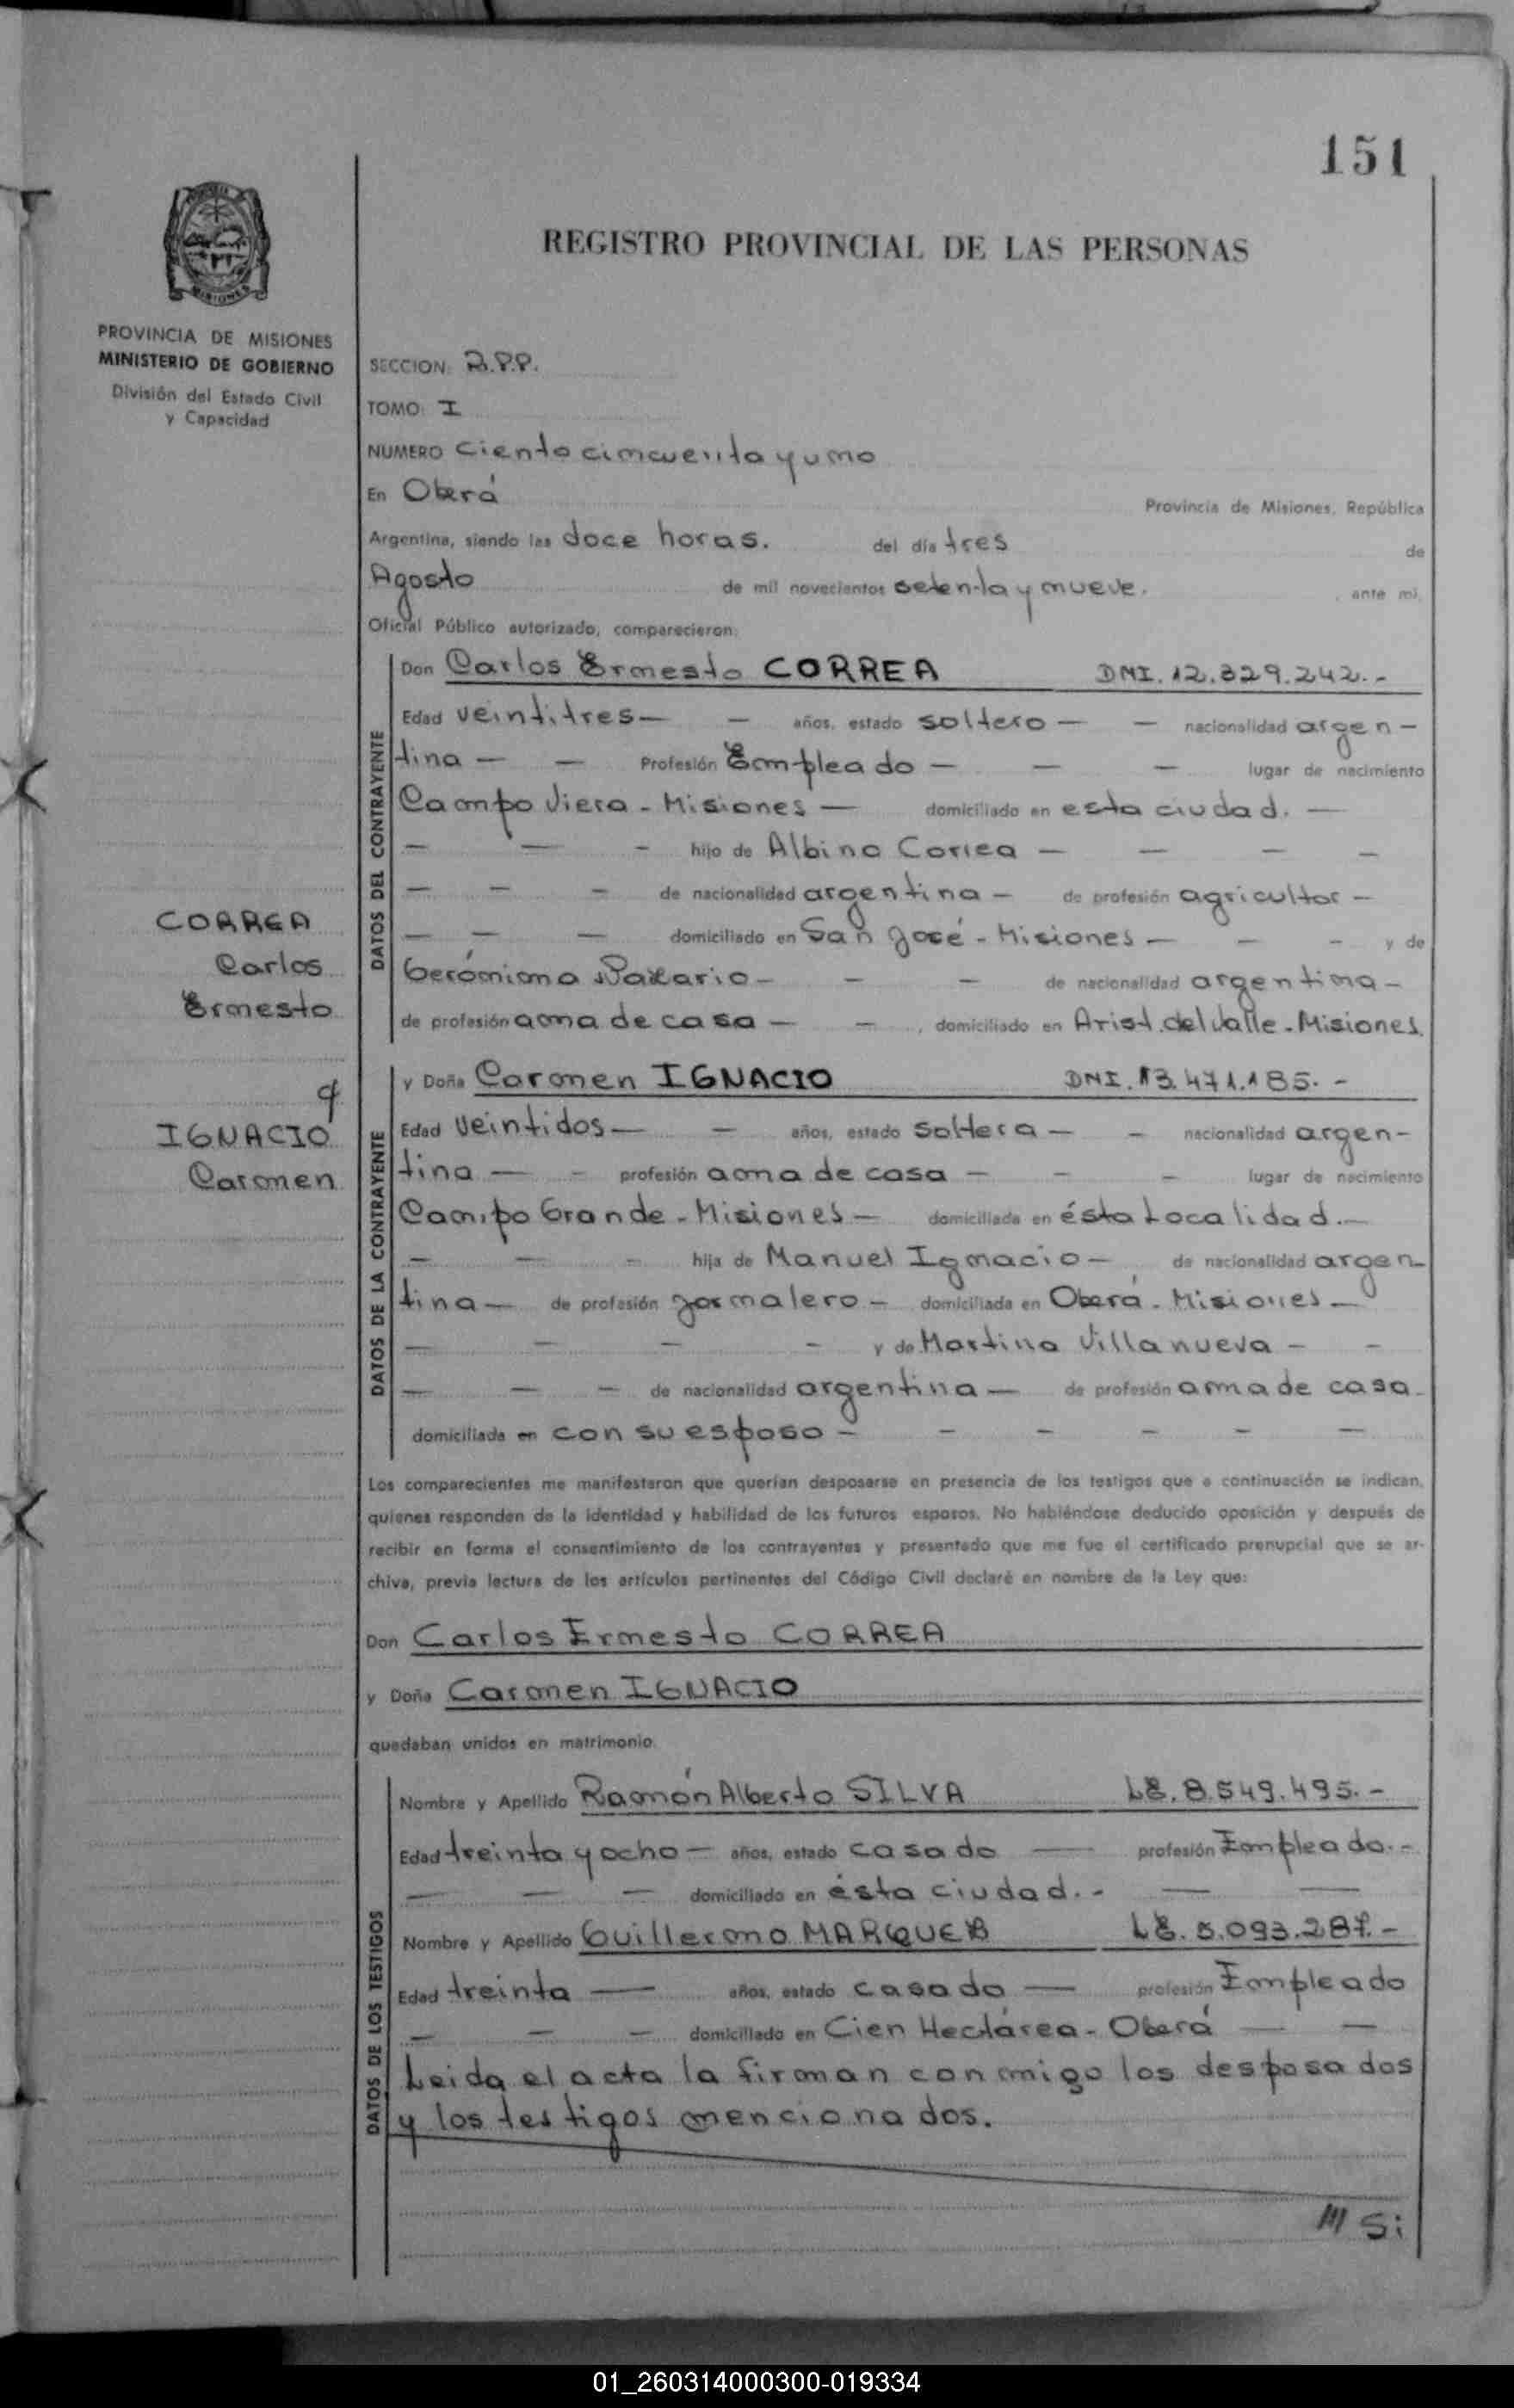 151
REGISTRO PROVINCIAL DE LAS PERSONAS
MISIONES
PROVINCIA DE MISIONES
MINISTERIO DE GOBIERNO
División del Estado Civil
y Capacidad
SECCION: R.P.P.
TOMO: I
NUMERO Ciento cincuenta y uno
En Oberá Provincia de Misiones, República
Argentina, siendo las doce horas. del día tres de
Agosto de mil novecientos setenta y nueve. , ante mi,
Oficial Público autorizado, comparecieron:
DATOS DEL CONTRAYENTE
Don Carlos Ernesto CORREA DNI. 12.329.242.-
Edad veintitres— — años, estado soltero — — nacionalidad argen-
tina — — Profesión Empleado — — — lugar de nacimiento
Campo Viera - Misiones — domiciliado en esta ciudad. —
— — - hijo de Albino Correa — — — —
— — — de nacionalidad argentina — de profesión agricultor —
— — — domiciliado en San José - Misiones — — - y de
Gerónima — — — de nacionalidad argentina —
de profesión ama de casa — — , domiciliado en Arist. del Valle - Misiones.
CORREA
Carlos
Ernesto
y
IGNACIO
Carmen
DATOS DE LA CONTRAYENTE
y Doña Carmen IGNACIO DNI. 13.471.185. -
Edad Veintidos — — años, estado Soltera — — nacionalidad argen-
tina — - profesión ama de casa — — — lugar de nacimiento
Campo Grande - Misiones — domiciliada en ésta Localidad. —
— — - hija de Manuel Ignacio — de nacionalidad argen-
tina — de profesión jornalero — domiciliada en Oberá - Misiones —
— — — - y de Martina Villanueva — —
— — — de nacionalidad argentina — de profesión ama de casa -
domiciliada en con su esposo — — — — — —
Los comparecientes me manifestaron que querían desposarse en presencia de los testigos que a continuación se indican,
quienes responden de la identidad y habilidad de los futuros esposos. No habiéndose deducido oposición y después de
recibir en forma el consentimiento de los contrayentes y presentado que me fue el certificado prenupcial que se ar-
chiva, previa lectura de los artículos pertinentes del Código Civil declaré en nombre de la Ley que:
Don Carlos Ernesto CORREA
y Doña Carmen IGNACIO
quedaban unidos en matrimonio.
DATOS DE LOS TESTIGOS
Nombre y Apellido Ramón Alberto SILVA LE. 8.549.495. -
Edad treinta y ocho — años, estado casado — profesión Empleado. -
— — — domiciliado en ésta ciudad. - — —
Nombre y Apellido Guillermo MARQUEZ LE. 5.093.287. -
Edad treinta — años, estado casado — profesión Empleado
— — — domiciliado en Cien Hectárea - Oberá — —
Leida el acta la firman conmigo los desposados
y los testigos mencionados.
/// Si
01_260314000300-019334